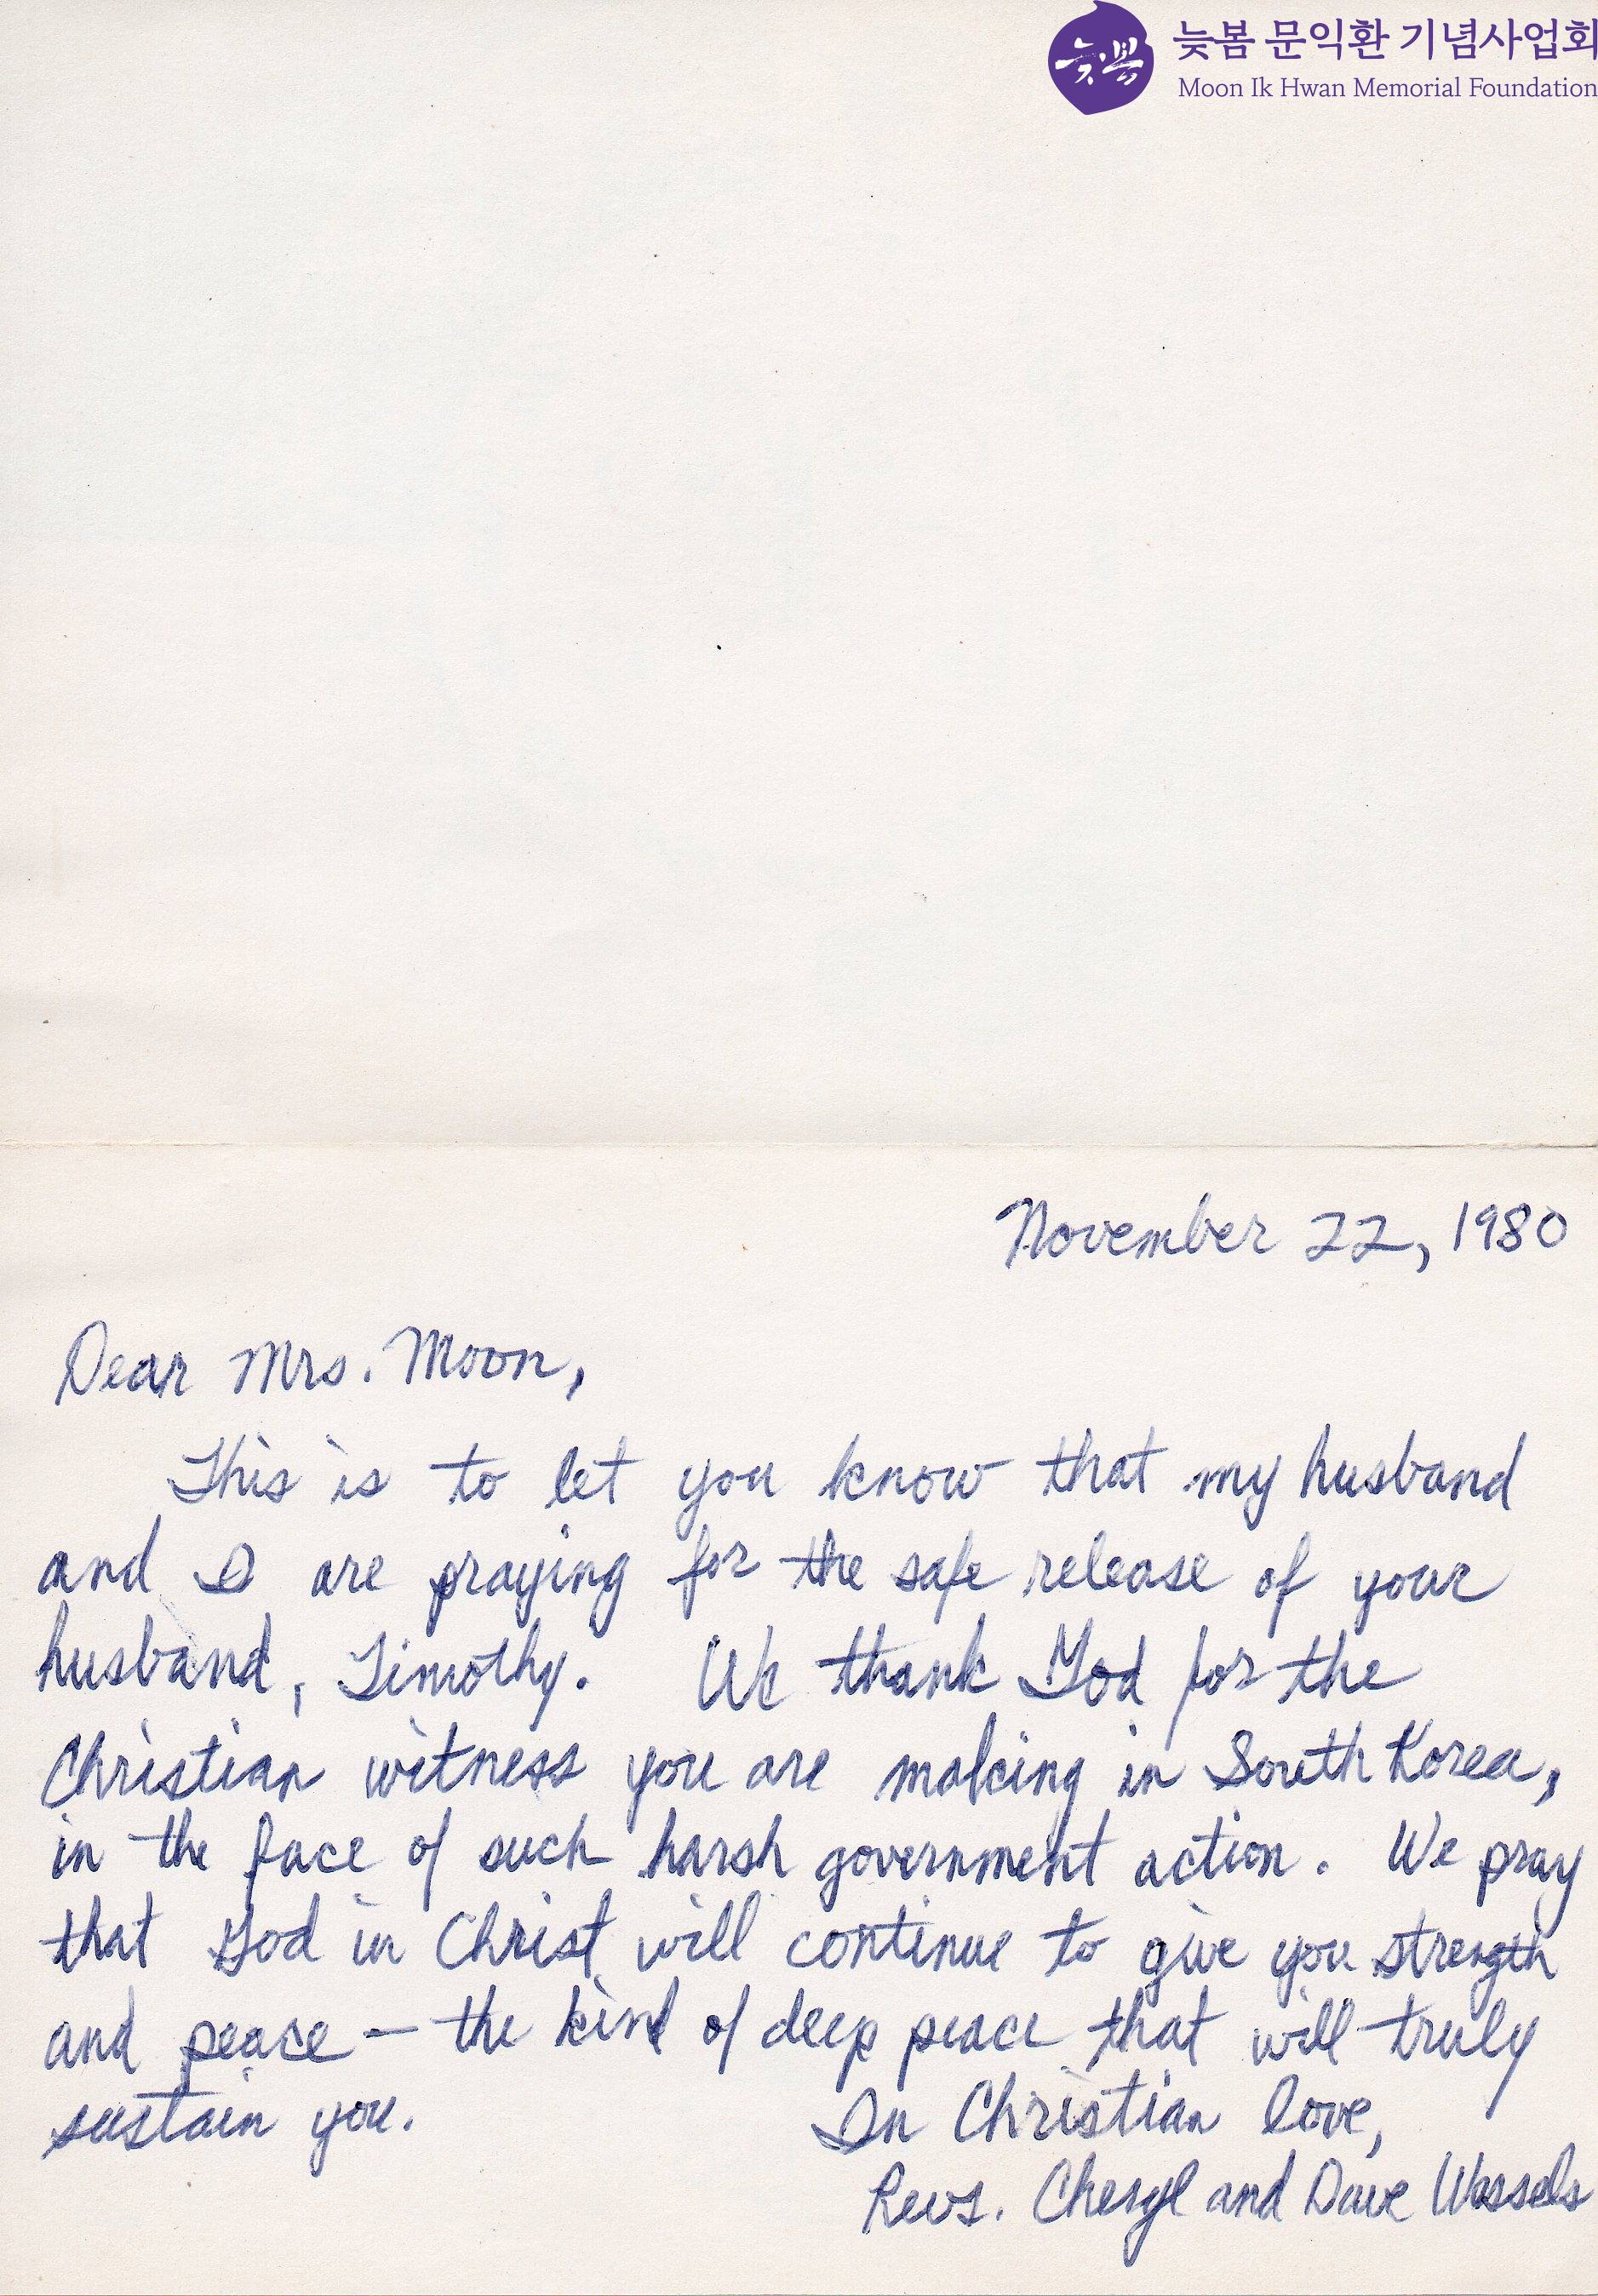 늦봄 문익환 기념사업회
늦봄
Moon Ik Hwan Memorial Foundation
November 22, 1980
Dear Mrs. Moon,
This is to let you know that my husband
and I are praying for the safe release of your
husband, Timothy. We thank God for the
Christian witness you are making in South Korea,
in the face of such harsh government action. We pray
that God in Christ will continue to give you strength
and peace — the kind of deep peace that will truly
sustain you.
In Christian love,
Revs. Cheryl and Dave Wessels